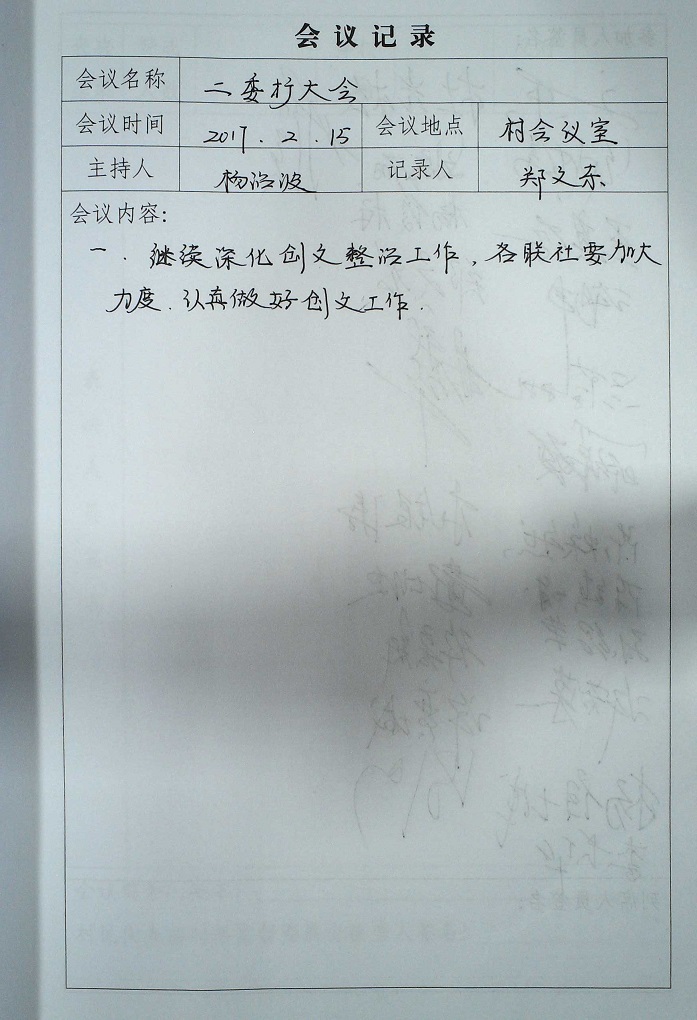 会议记录
会议名称 二委扩大会
会议时间 2017.2.15 会议地点 村会议室
主持人 杨治波 记录人 郑文东
会议内容:
一. 继续深化创文整治工作,各联社要加大
力度.认真做好创文工作.